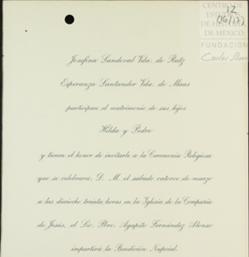 12
(16/17)
CENTRO DE
ESTUDIOS
DE HISTORIA
DE MÉXICO
FUNDACIÓN
Carlos Slim
Josefina Sandoval Vda. de Ruiz
Esperanza Santander Vda. de Maas
participan el matrimonio de sus hijos
Hilda y Pedro
y tienen el honor de invitarle a la Ceremonia Religiosa
que se celebrará, D. M. el sábado catorce de marzo
a las dieciocho treinta horas en la Iglesia de la Compañía
de Jesús, el Lic. Pbro. Agapito Fernández Alonso
impartirá la Bendición Nupcial.